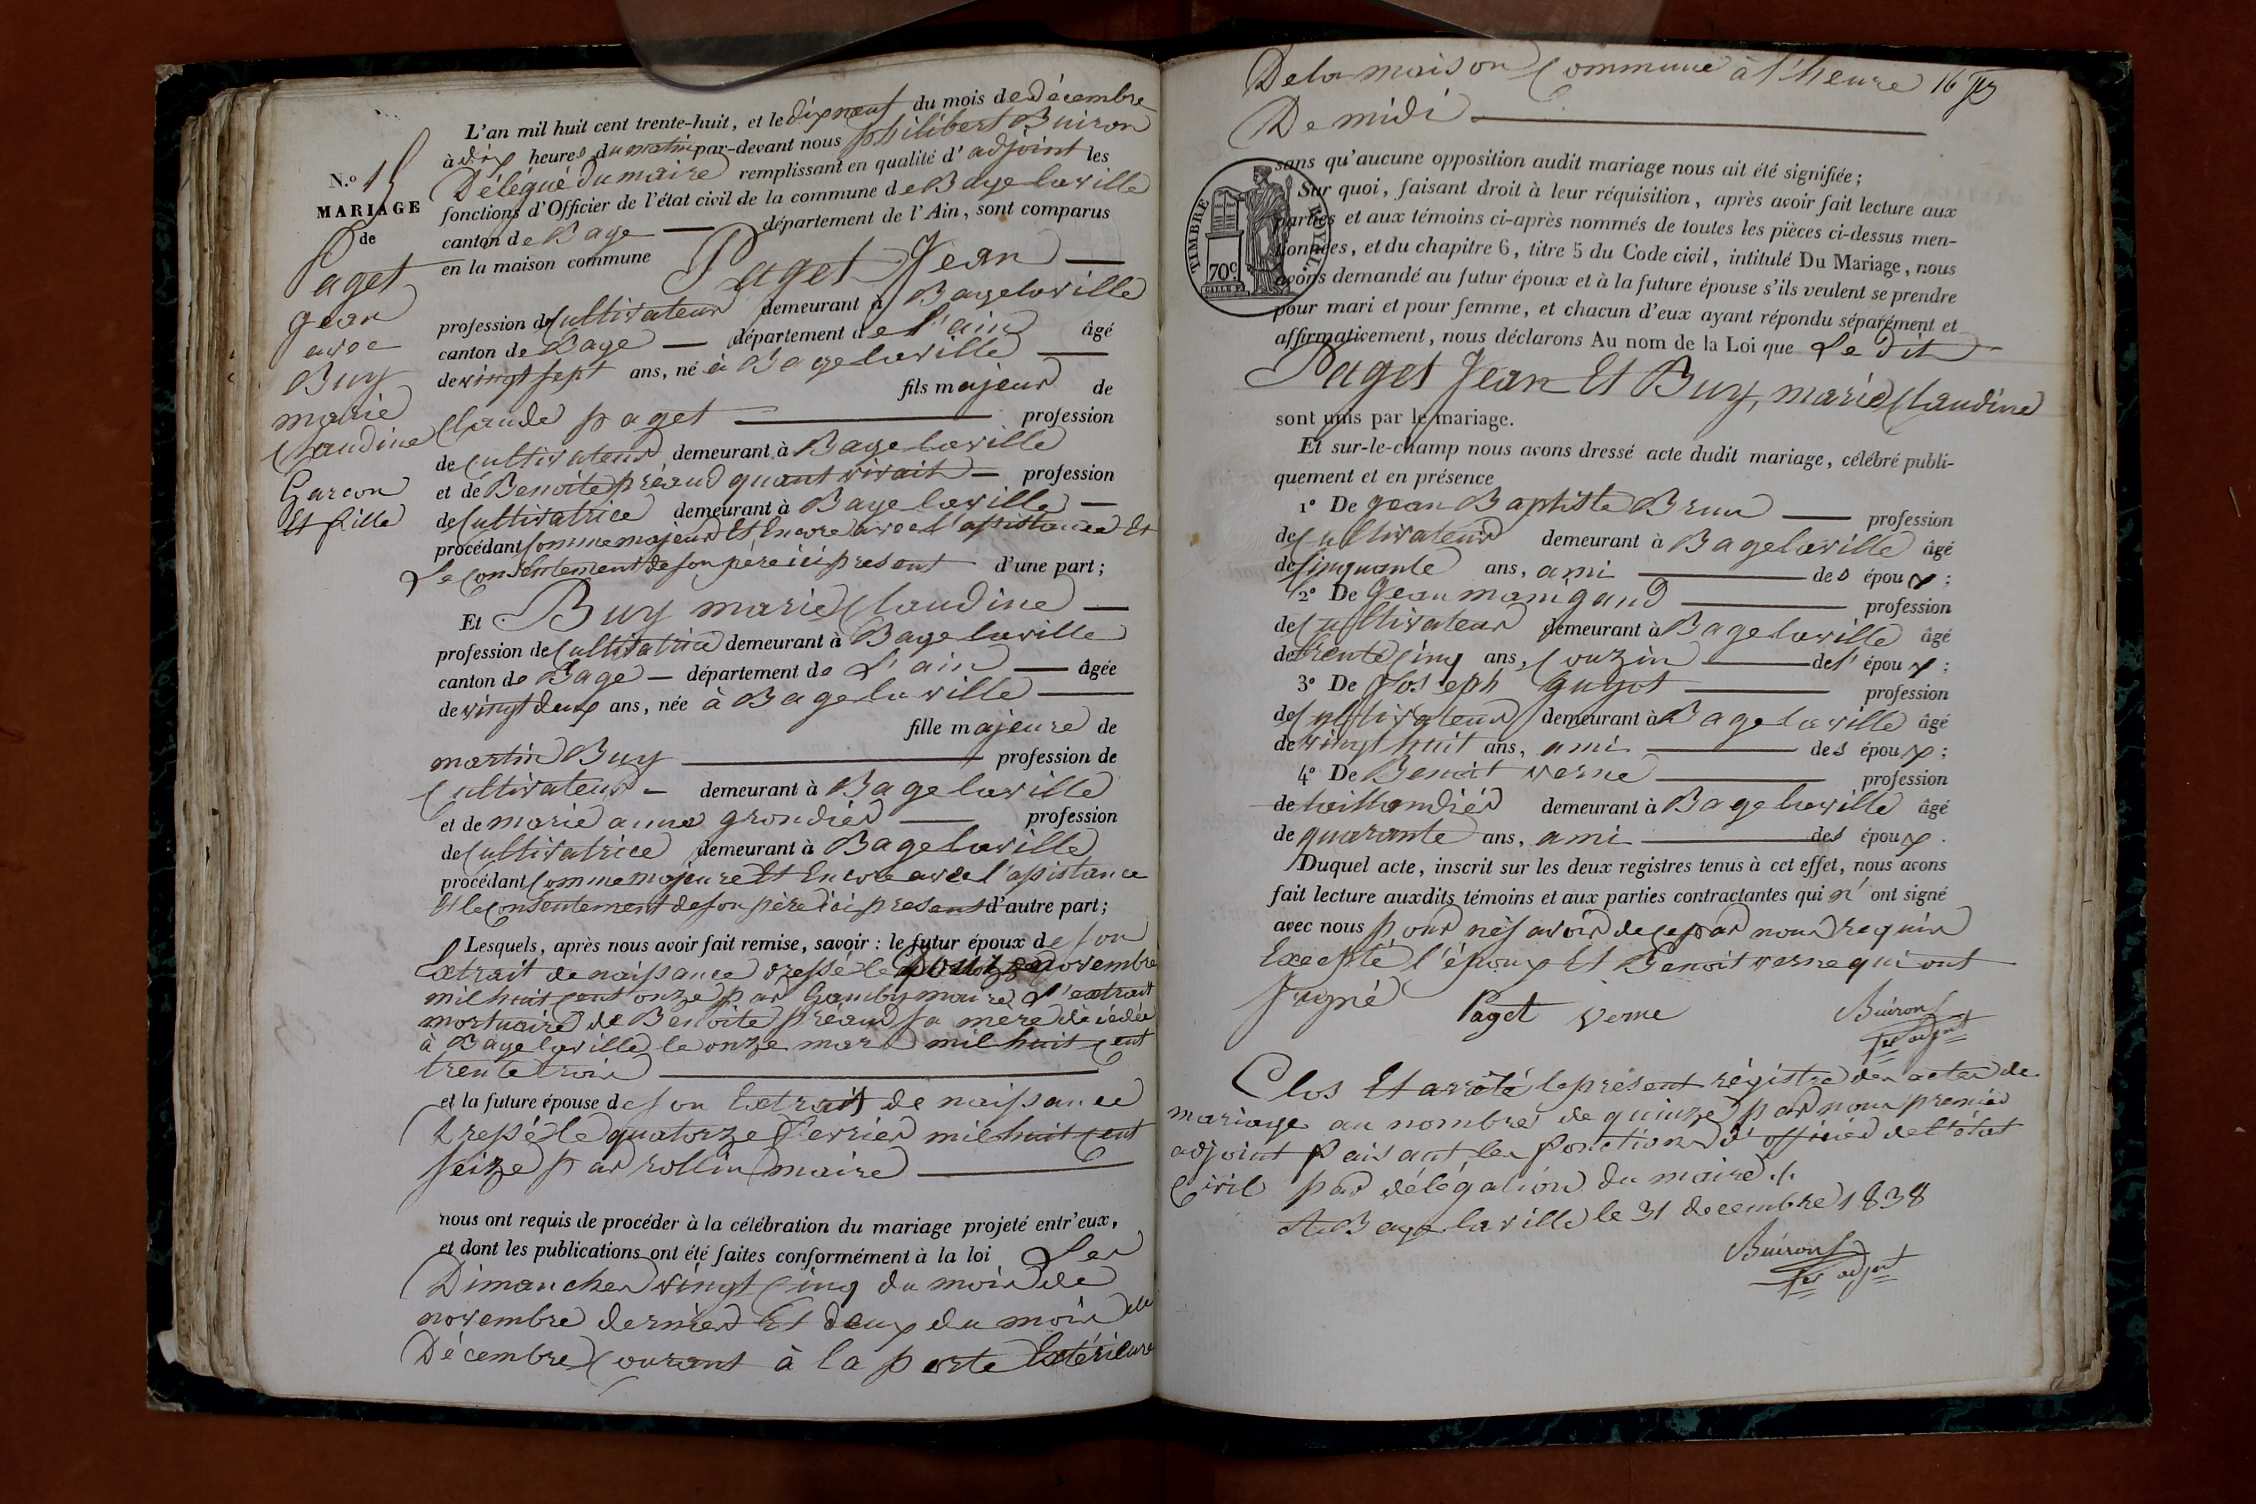 N.º 15
MARIAGE
de
Paget
Jean
avec
Buy
marie
Claudine
Garcon
Et fille
L'an mil huit cent trente-huit, et le dix neuf du mois de décembre
à dix heures du matin par-devant nous philibert Buiron
Délégué du maire remplissant en qualité d'adjoint les
fonctions d'Officier de l'état civil de la commune de Bage laville
canton de Bage département de l'Ain, sont comparus
en la maison commune Paget Jean
profession de Cultivateur demeurant à Bagelaville
canton de Bage département de l'ain âgé
de vingt sept ans, né à Bagelaville
fils majeur de
Claude paget profession
de Cultivateur demeurant à Bagelaville
et de Benoite préaud quant vivait profession
de Cultivatrice demeurant à Bage laville
procédant Comme majeur Et Encore avec l'assistance Et
Le Consentement de son père ici present d'une part;
Et Buy marie Claudine
profession de Cultivatrice demeurant à Bagelaville
canton de Bage département de L'ain âgée
de vingt deux ans, née à Bagelaville
fille majeure de
martin Buy profession de
Cultivateur demeurant à Bagelaville
et de marie anne grondier profession
de Cultivatrice demeurant à Bagelaville
procédant Comme majeure Et Encore avec l'assistance
Et le Consentement de son père ici present d'autre part;
Lesquels, après nous avoir fait remise, savoir: le futur époux de son
Extrait de naissance dressé le novembre
mil huit cent onze par maire L'extrait
mortuaire de Benoite préaud sa mère décédée
à Bagelaville le onze mars mil huit cent
trente trois
et la future épouse de son Extrait de naissance
dressé le quatorze fevrier mil huit cent
seize par rollin maire
nous ont requis de procéder à la célébration du mariage projeté entr'eux,
et dont les publications ont été faites conformément à la loi Les
Dimanches vingt Cinq du mois de
novembre dernier Et deux du mois de
Décembre Courant à la porte Extérieure
De la maison Commune à l'heure 16
De midi
TIMBRE ROYAL
70c
sans qu'aucune opposition audit mariage nous ait été signifiée;
Sur quoi, faisant droit à leur réquisition, après avoir fait lecture aux
parties et aux témoins ci-après nommés de toutes les pièces ci-dessus men-
tionnées, et du chapitre 6, titre 5 du Code civil, intitulé Du Mariage, nous
avons demandé au futur époux et à la future épouse s'ils veulent se prendre
pour mari et pour femme, et chacun d'eux ayant répondu séparément et
affirmativement, nous déclarons Au nom de la Loi que Le Dit
Paget Jean Et Buy, marie Claudine
sont unis par le mariage.
Et sur-le-champ nous avons dressé acte dudit mariage, célébré publi-
quement et en présence
1º De Jean Baptiste Brun profession
de Cultivateur demeurant à Bagelaville âgé
de Cinquante ans, ami des époux;
2º De Jean maingaud profession
de Cultivateur demeurant à Bagelaville âgé
de trente Cinq ans, Couzin de l'époux;
3º De Joseph guyot profession
de Cultivateur demeurant à Bagelaville âgé
de vingt huit ans, ami des époux;
4º De Benoit verne profession
de taillandier demeurant à Bagelaville âgé
de quarante ans, ami des époux.
Duquel acte, inscrit sur les deux registres tenus à cet effet, nous avons
fait lecture auxdits témoins et aux parties contractantes qui n'ont signé
avec nous pour ne savoir de ce par nous requis
Excepté l'époux Et Benoit verne qui ont
signé Paget Verne Buiron
1er adjnt
Clos Et arrêté le présent régistre des actes de
mariage au nombre de quinze par nous premier
adjoint faisant les fonctions d'officier de l'état
Civil par délégation du maire
A Bage laville le 31 decembre 1838
Buiron
1er adjnt